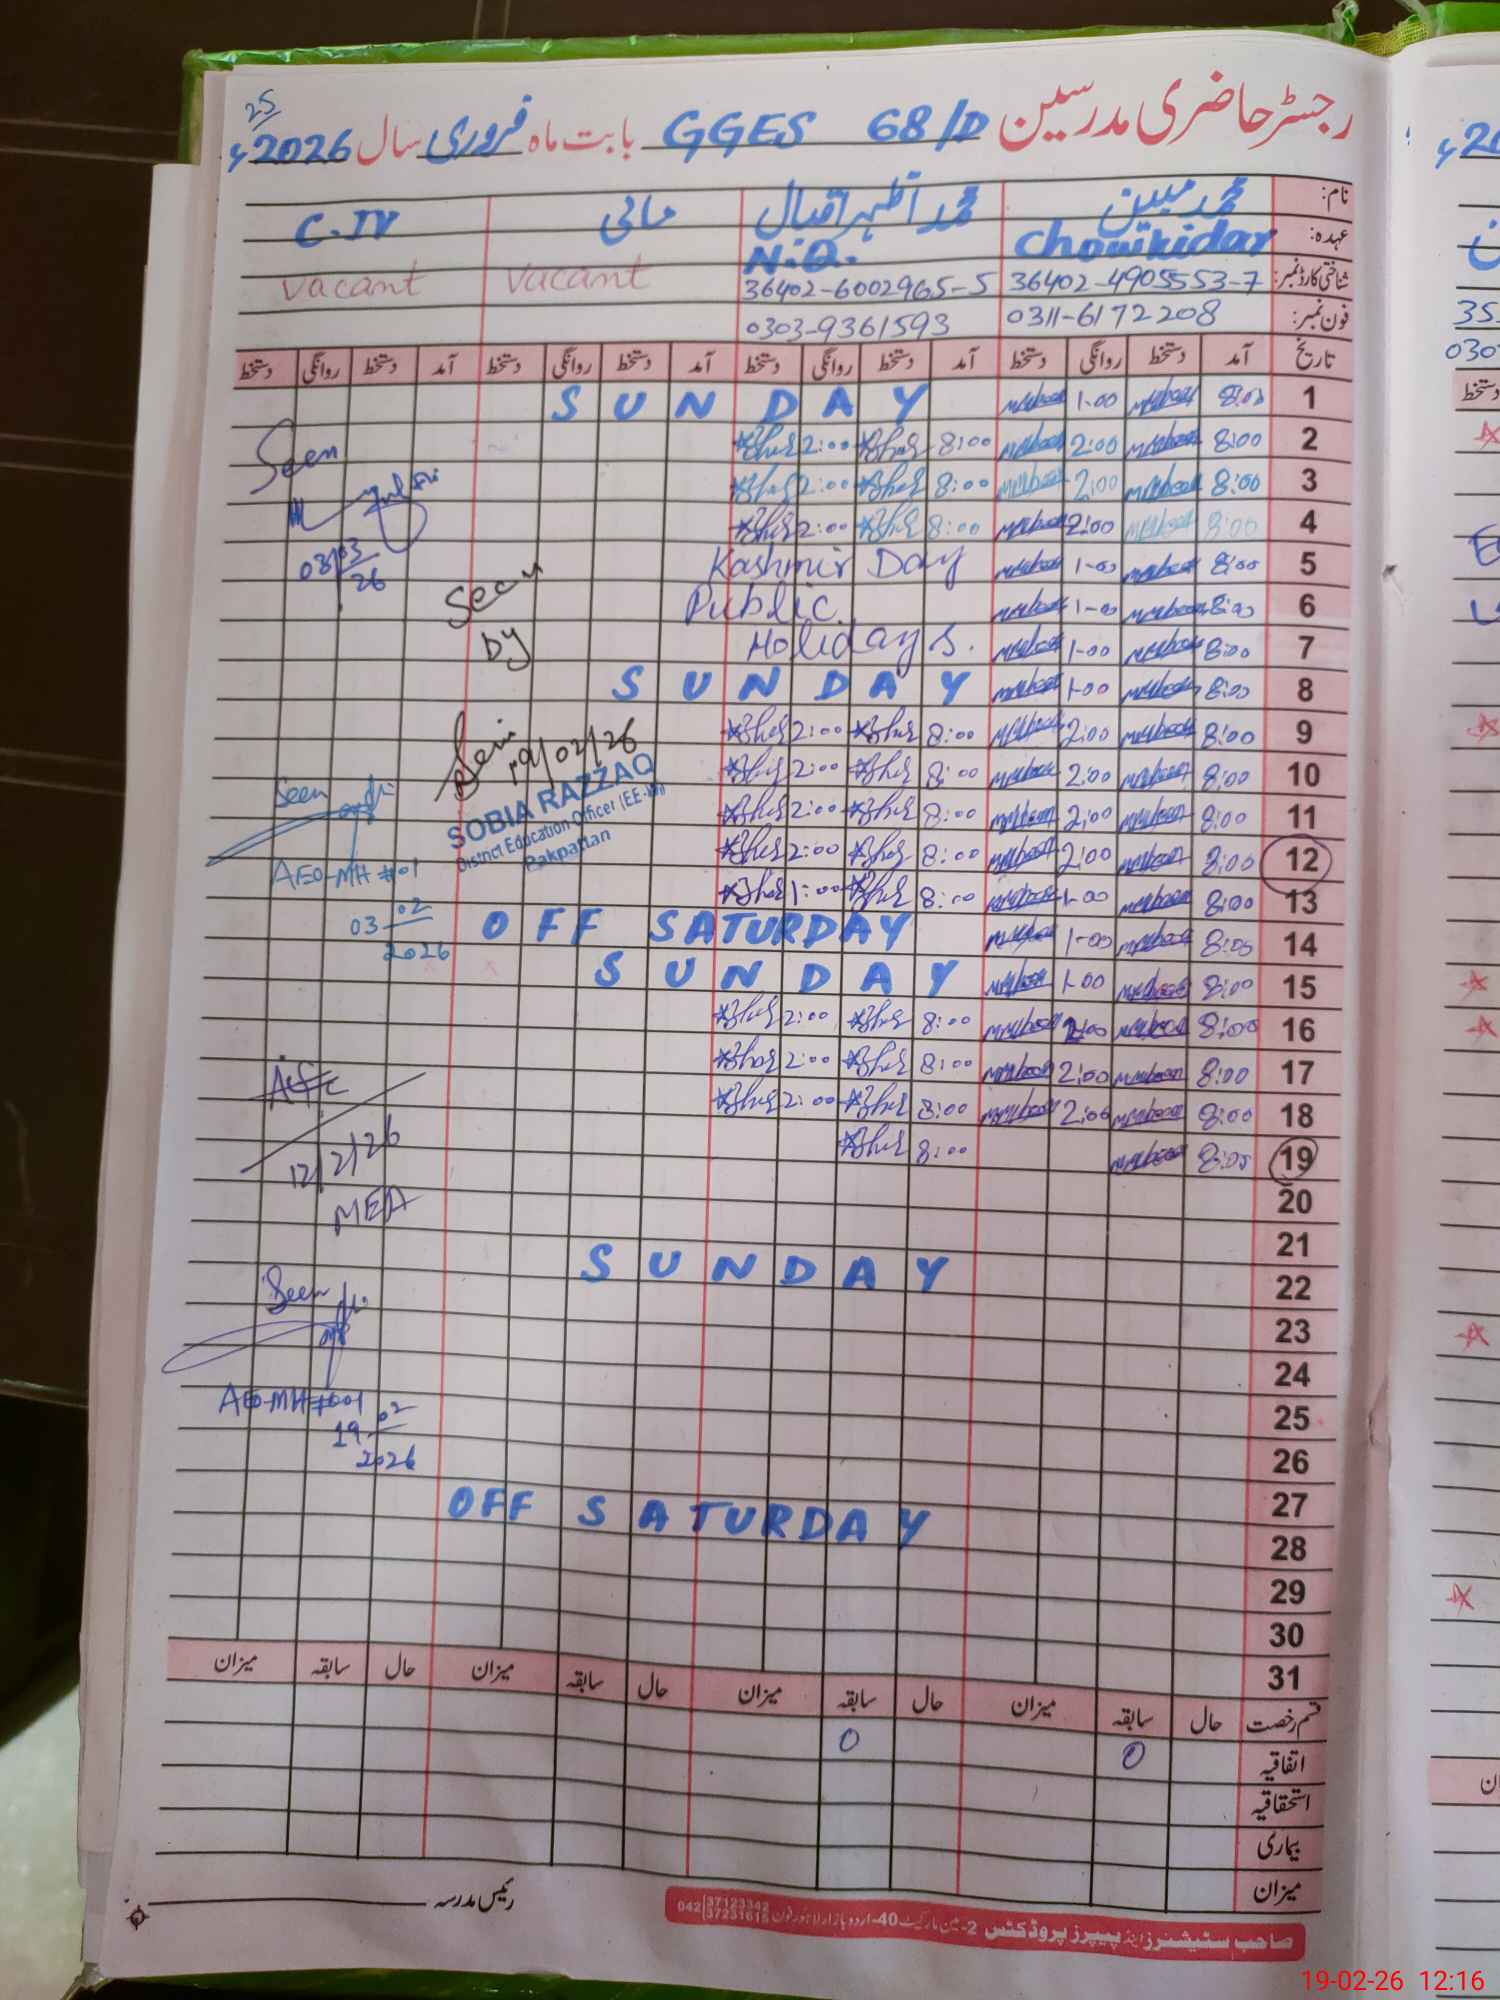 25
رجسٹر حاضری مدرسین GGES 68/D بابت ماہ فروری سال 2026ء
نام: محمد مبین محمد اظہر اقبال مالی C.IV
عہدہ: Chowkidar N.Q.
شناختی کارڈ نمبر: 36402-4905553-7 36402-6002965-5 vacant vacant
فون نمبر: 0311-6172208 0303-9361593
تاریخ آمد دستخط روانگی دستخط آمد دستخط روانگی دستخط آمد دستخط روانگی دستخط آمد دستخط روانگی دستخط
1 8:00 1-00 SUNDAY
2 8:00 2:00 8:00 2:00
3 8:00 2:00 8:00 2:00
4 8:00 2:00 8:00 2:00
5 8:00 1-00 Kashmir Day
6 8:00 1-00 Public
7 8:00 1-00 Holidays.
8 8:00 1-00 SUNDAY
9 8:00 2:00 8:00 2:00
10 8:00 2:00 8:00 2:00
11 8:00 2:00 8:00 2:00
12 8:00 2:00 8:00 2:00
13 8:00 1-00 8:00 1:00
14 8:00 1-00 OFF SATURDAY
15 8:00 1-00 SUNDAY
16 8:00 2:00 8:00 2:00
17 8:00 2:00 8:00 2:00
18 8:00 2:00 8:00 2:00
19 8:00 8:00
20
21
22 SUNDAY
23
24
25
26
27
28 OFF SATURDAY
29
30
31
Seen
03/03/26
Seen
by
19/02/26
SOBIA RAZZAQ
District Education Officer (EE-M)
Pakpattan
Seen
AEO-MH#01
03/02/2026
12/2/26
MEA
Seen
AEO-MH#001
19/02/2026
قسم رخصت حال سابقہ میزان حال سابقہ میزان حال سابقہ میزان حال سابقہ میزان
اتفاقیہ 0 0
استحقاقیہ
بیماری
میزان
رئیس مدرسہ
صاحب سٹیشنرز اینڈ پیپرز پروڈکٹس 2-مین مارکیٹ 40-اردو بازار لاہور فون 042
37123342
37231615
20
35.
030
دستخط
19-02-26 12:16